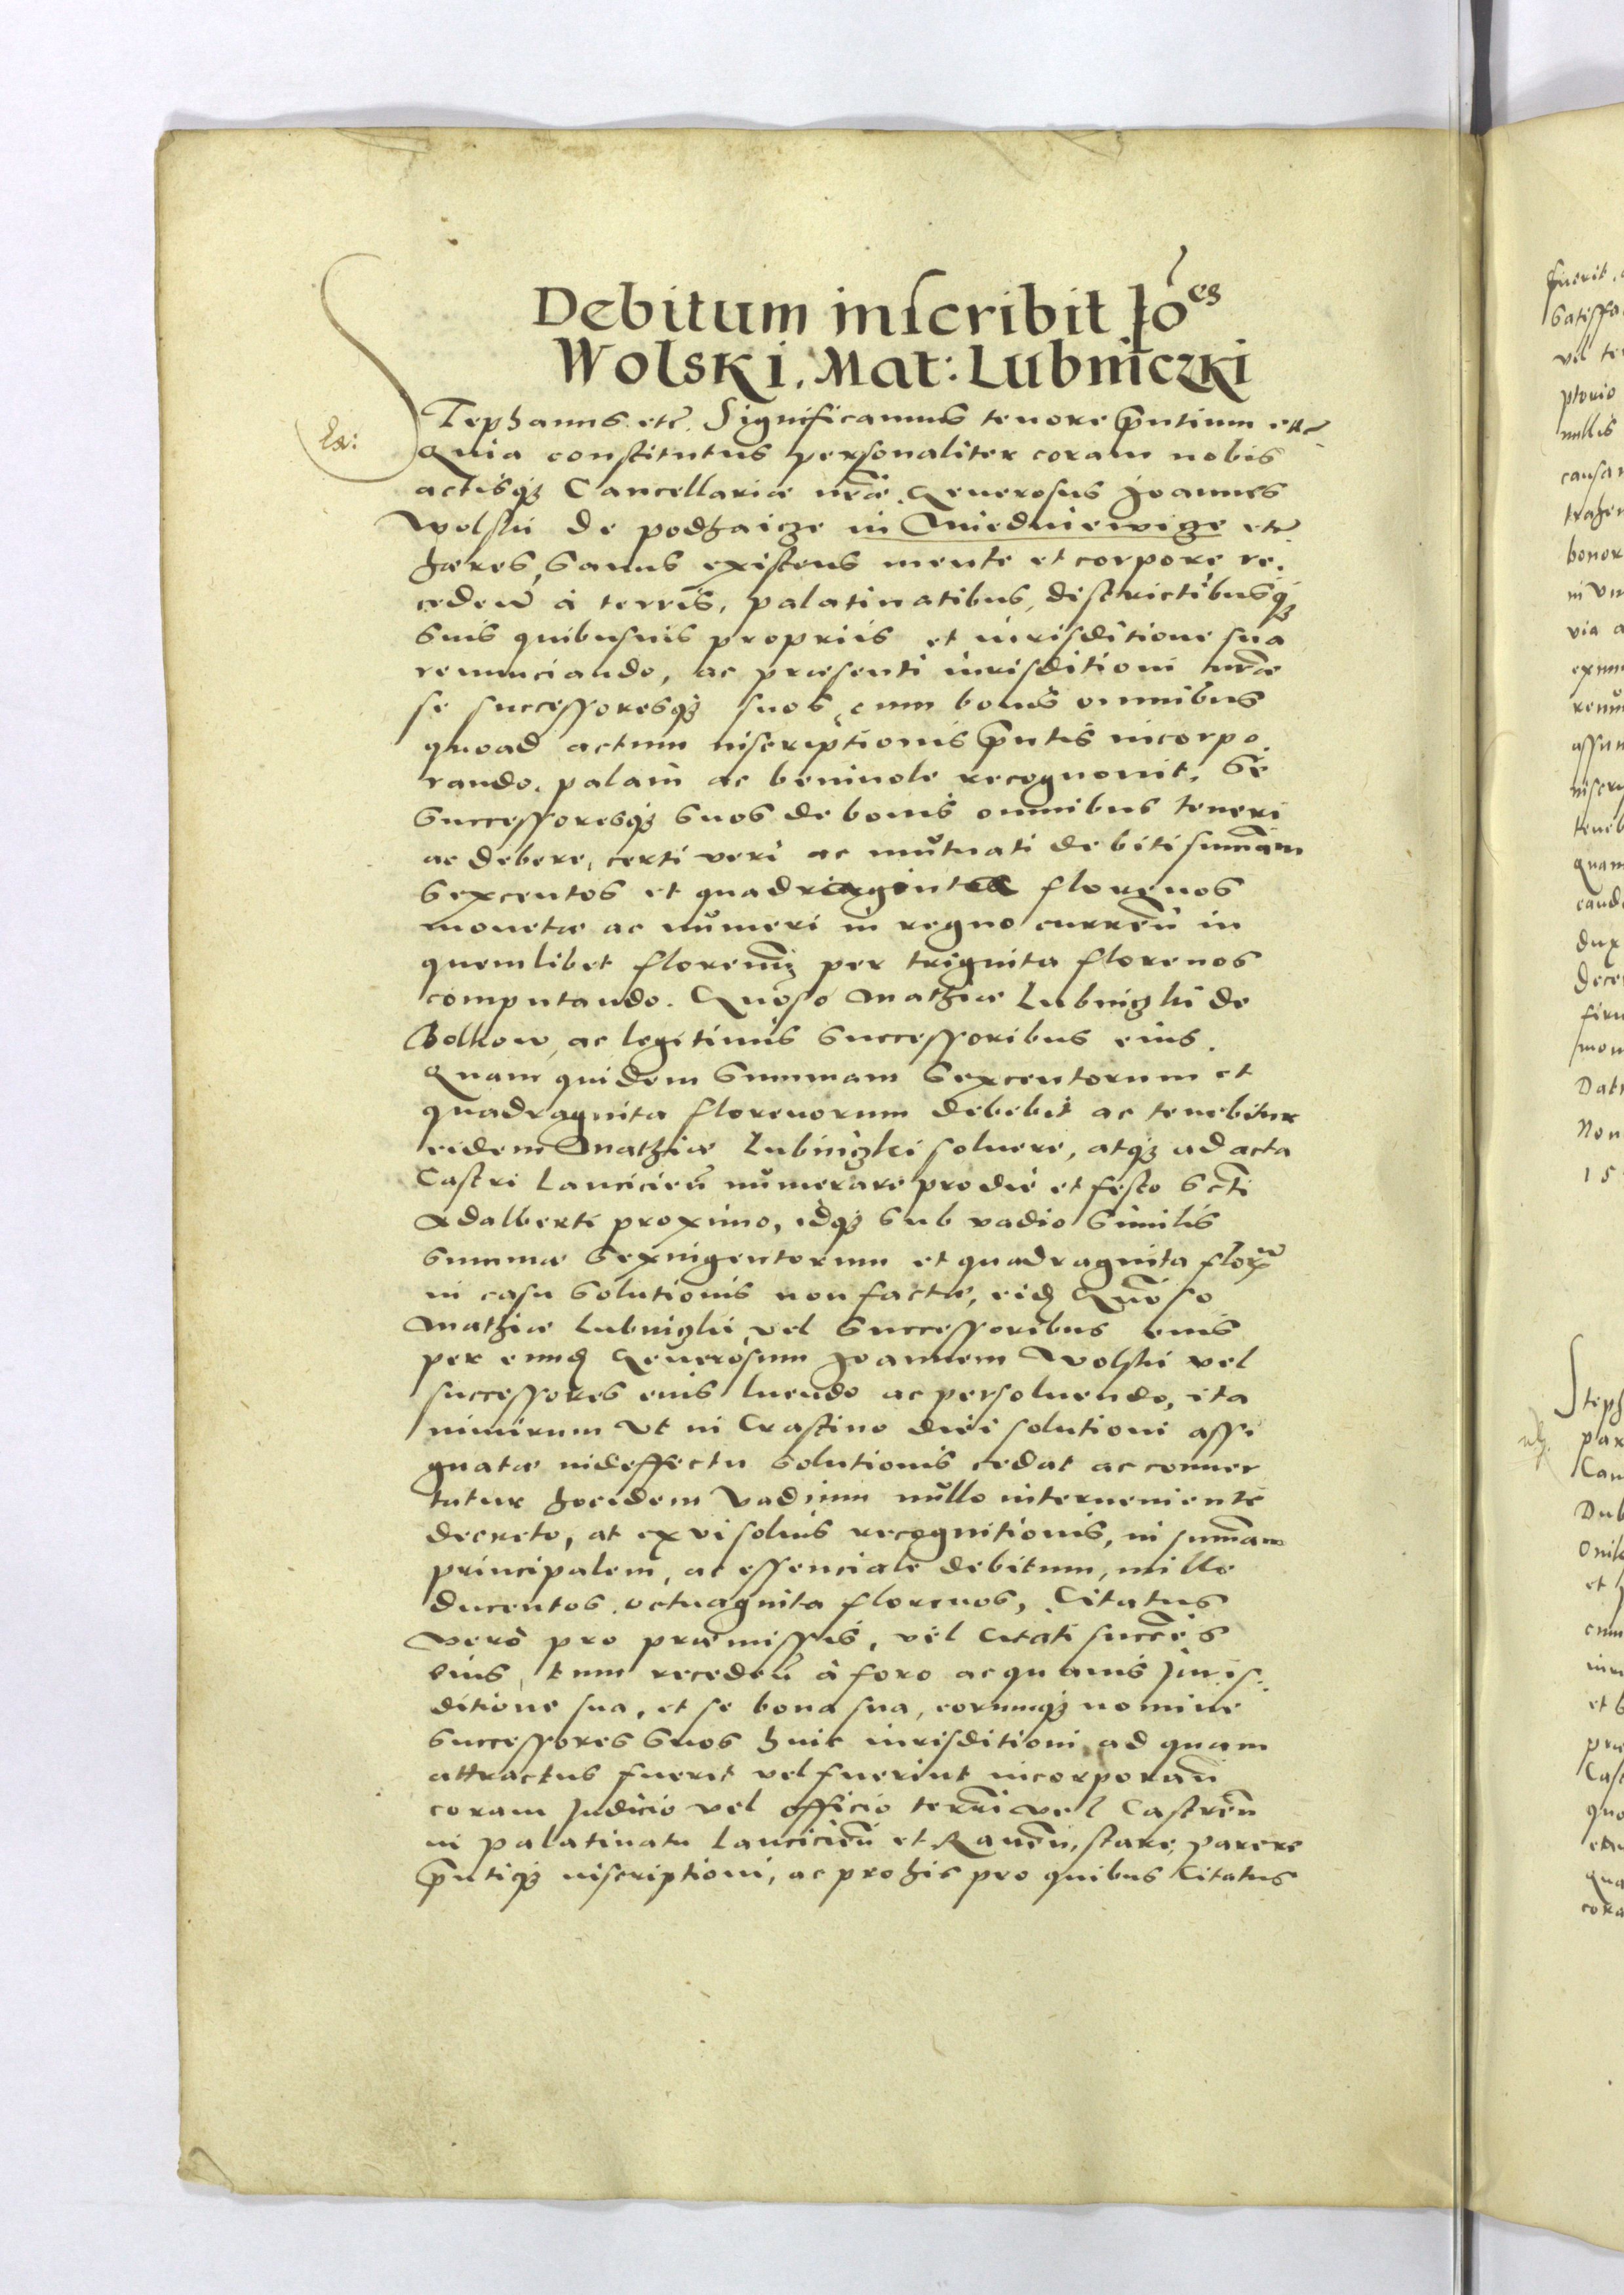 Debitum inscribit Joes
Wolski. Mat: Lubniczki
STephanus etc. Significamus tenore pntium etc
Ex:
Quia constitutus personaliter coram nobis
actisq3 Cancellariæ nræ Generosus Joannes
Wolski de podhaicze in Miedniewicze etc
hæres, sanus existens mente et corpore re.
ceden a terris, palatinatibus, districtibusq3
suis quibusuis propriis et iurisditione sua
renunciando, ac præsenti iurisditioni nræ
se successoresq3 suos cum bonis omnibus
quoad actum inscriptionis pntis incorpo.
rando, palam ac beniuole recognouit, Se
successoresq3 suos de bonis omnibus teneri
ac debere, certi veri ac mutuati debiti summam
sexcentos et quadraginta florenos
monetæ ac numeri in regno curren in
quemlibet florenum per triginta florenos
computando. Gnoso Mathiæ Lubniczki de
Bolkow, ac legitimis successoribus eius.
Quam quidem summam sexcentorum et
quadraginta florenorum debebit ac tenebitur
eidem Mathiæ Lubniczki soluere, atq3 ad acta
Castri Lancicien numerare pro die et festo scti
Adalberti proximo, idq3 sub vadio similis
summæ sexingentorum et quadraginta flor
in casu solutionis non factæ, eid Gnoso
Mathiæ Lubniczki vel successoribus eius
per eund Generosum Joannem Wolski vel
successores eius luendo ac persoluendo, ita
nimirum vt in Crastino diei solutioni assi
gnatæ indeffectu solutionis cedat ac conuer
tatur hocidem vadium nullo interueniente
decreto, at ex vi solius recognitionis, in summam
principalem, ac essenciale debitum, mille
ducentos octuaginta florenos, Citatus
vero pro præmissis, vel citati success
eius, tum receden a foro ac quauis Juris:
ditione sua, et se bona sua, eorumq3 nomine
successores suos huic iurisditioni ad quam
attractus fuerit vel fuerint incorporan
coram Judicio vel officio terrri vel Castren
in palatinatu Lancicien et Rauen, stare, parere
pntiq3 inscriptioni, ac pro his pro quibus Citatus